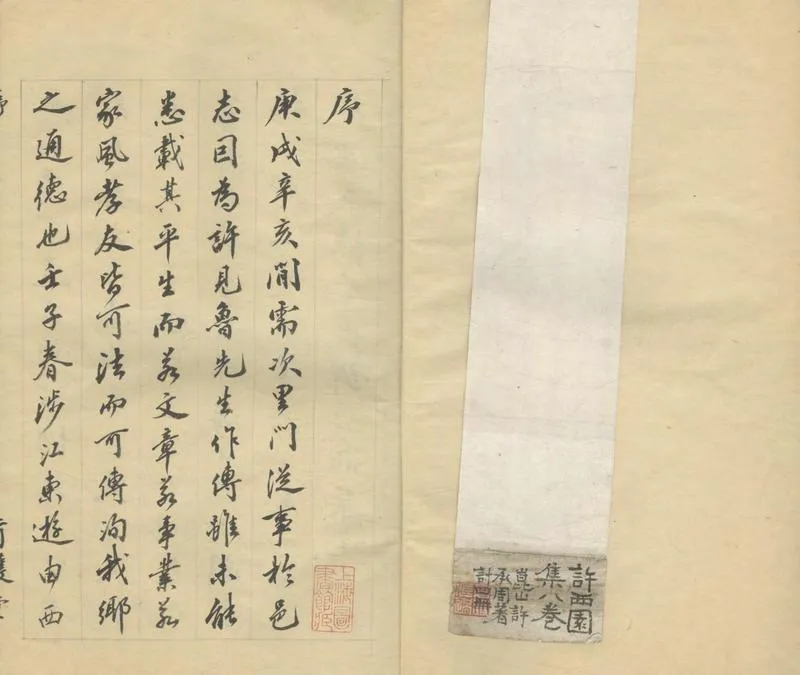 許西園
集八卷
崑山許
承周著
計四冊
序
庚戌辛亥間需次里門從事於邑
志因為許見魯先生作傳雖未能
悉載其平生而若文章若事業若
家風孝友皆可法而可傳洵我鄉
之通德也壬子春涉江東遊由西
上海圖書館藏